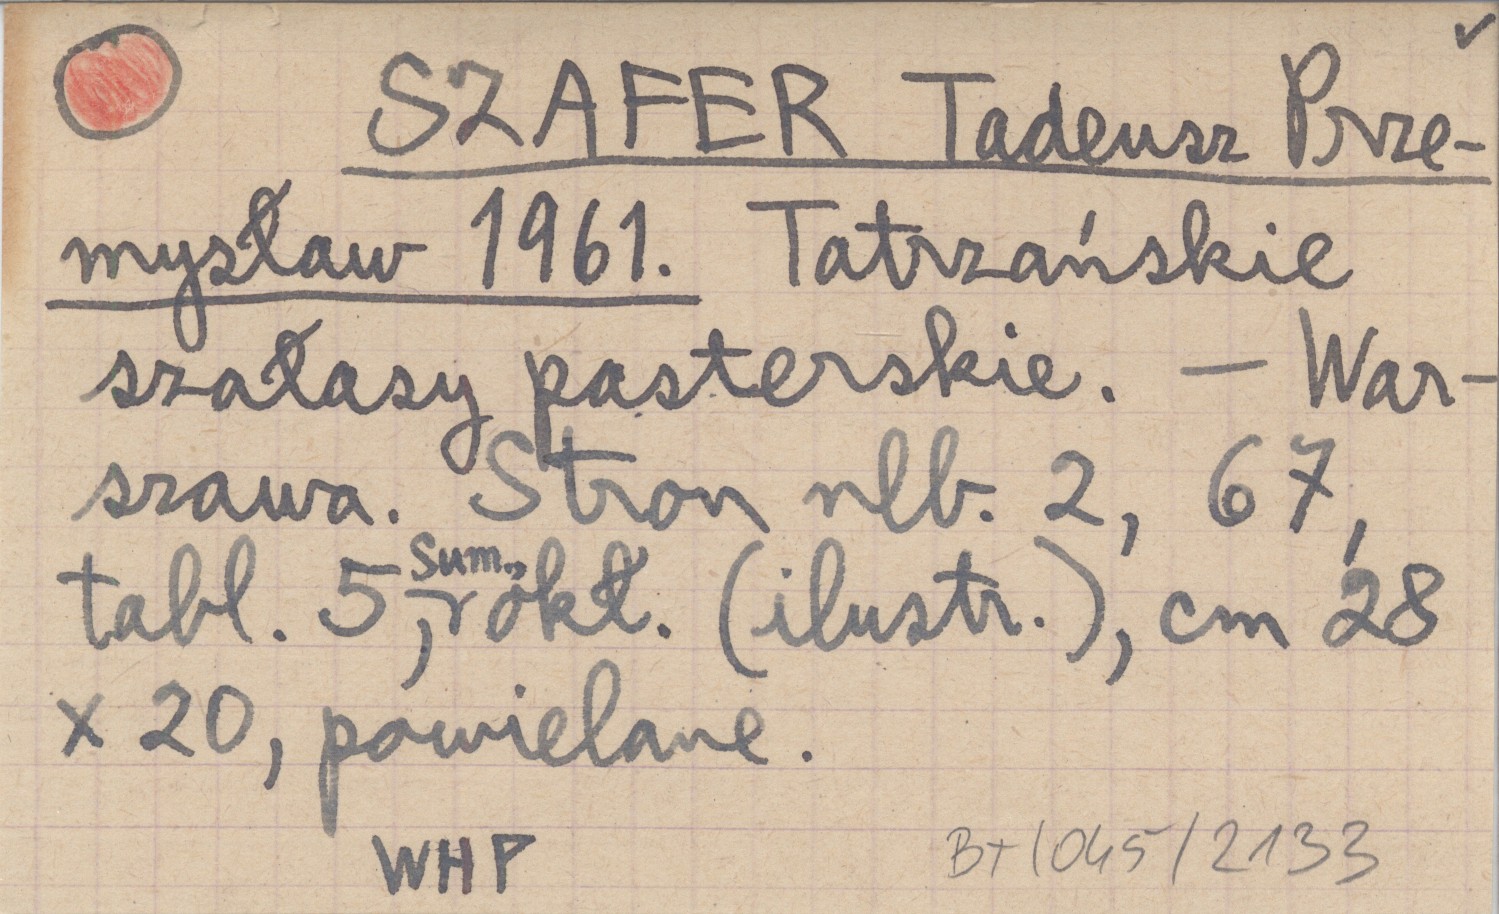 SZAFER Tadeusz Prze-
mysław 1961. Tatrzańskie
szałasy pasterskie. — War-
szawa. Stron nlb. 2, 67,
tabl. 5, sum., okł. (ilustr.), cm 28
x 20, powielane.
WHP
BT/045/2133